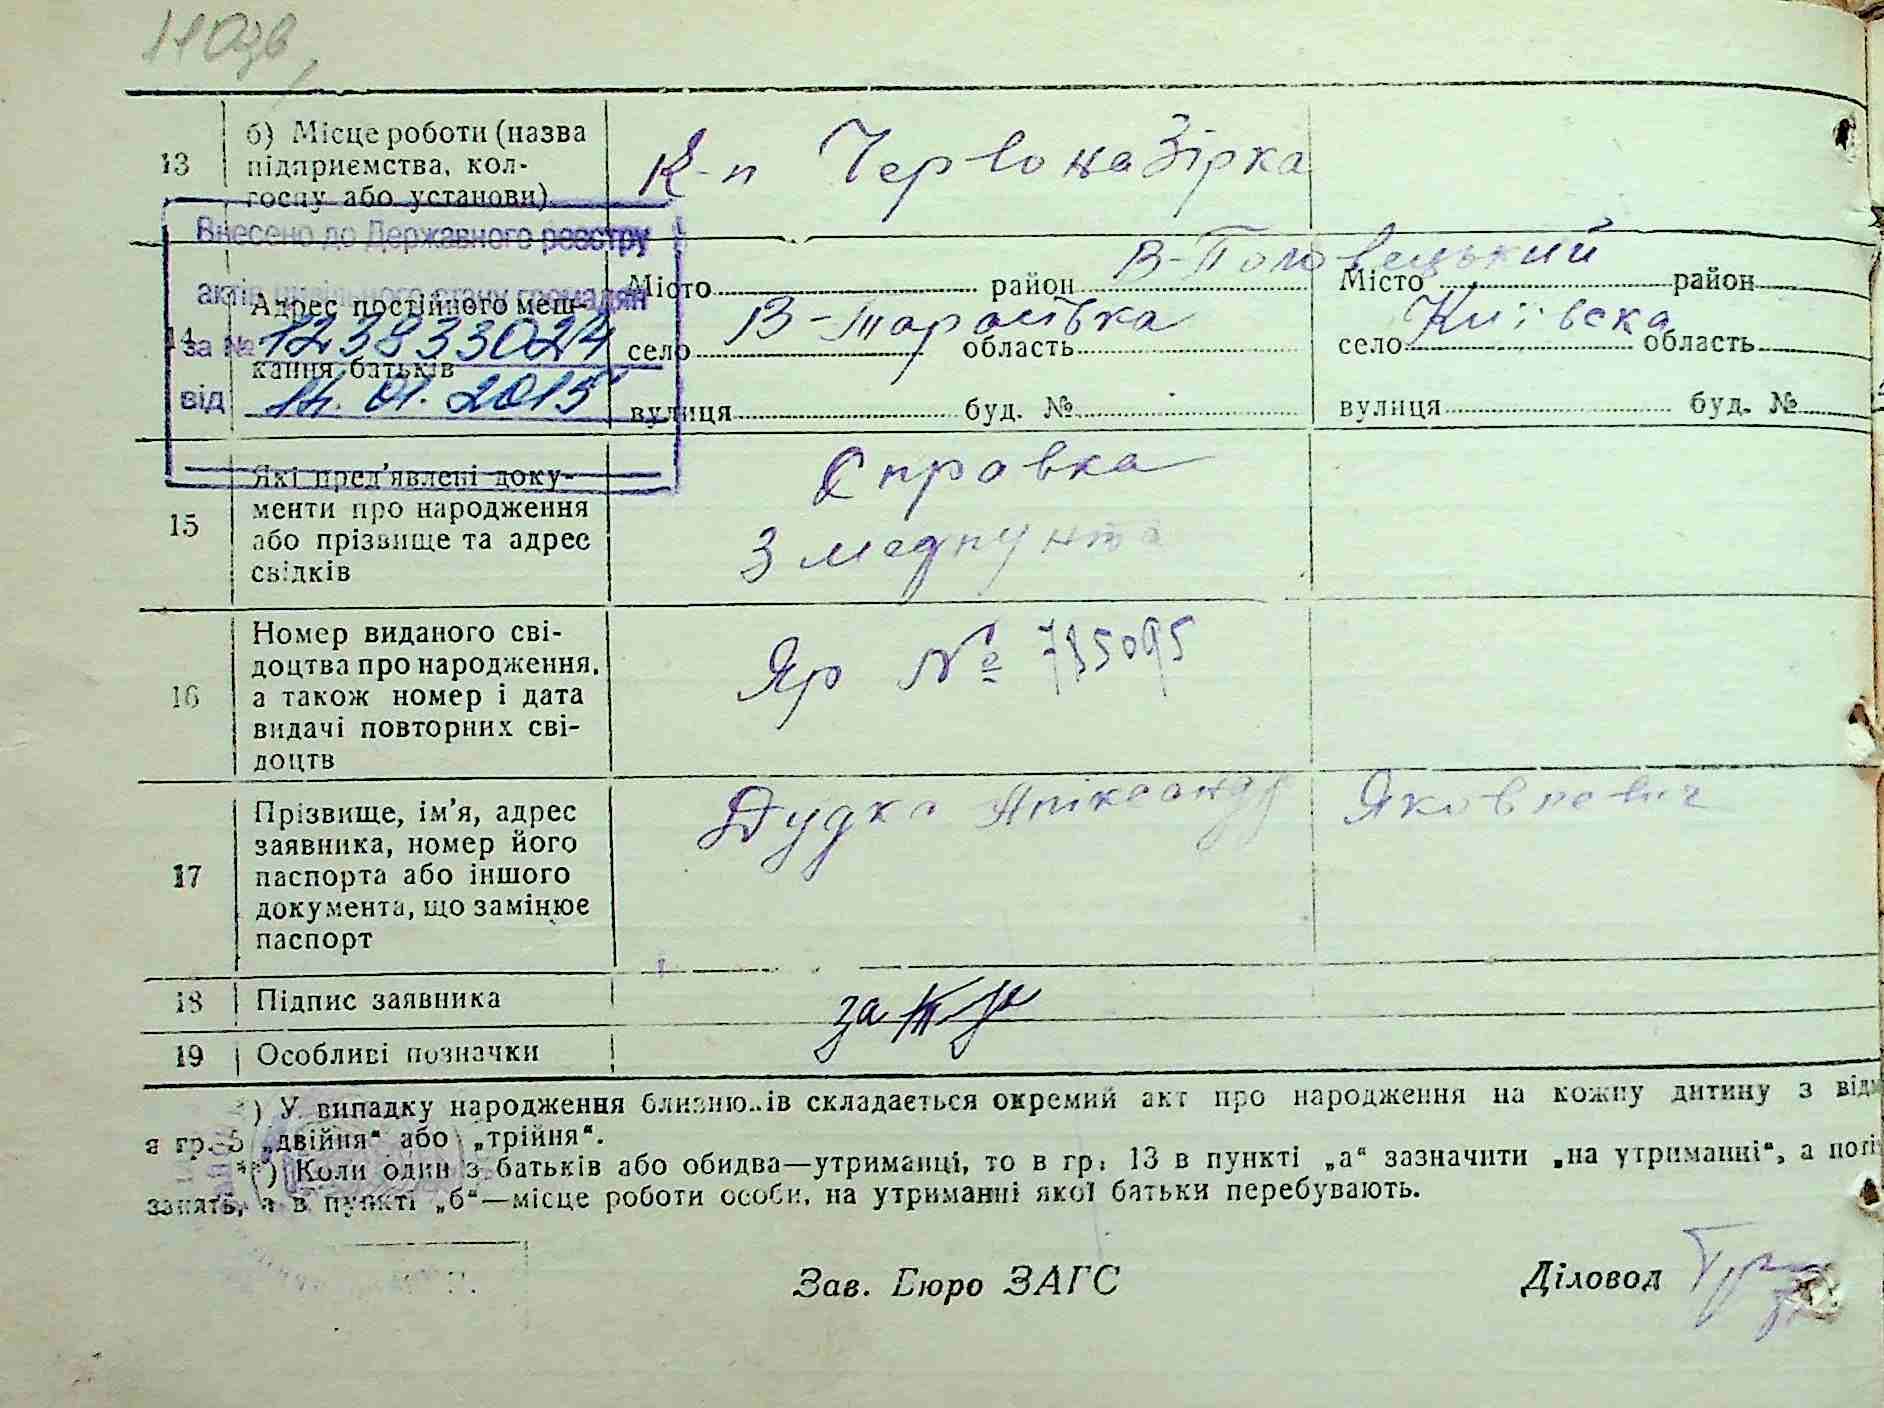 110зв,
13 б) Місце роботи (назва
підприємства, кол-
госпу або установи)
К-п Червона Зірка
Внесено до Державного реєстру
актів цивільного стану громадян
за № 1238933024
від 14.01.2015
14 Адрес постійного меш-
кання батьків
Місто район В-Половецький
село В-Тарасівка область
вулиця буд. №
Місто район
село Київска область
вулиця буд. №
15 Які пред'явлені доку-
менти про народження
або прізвище та адрес
свідків
Справка
з медпункта
16 Номер виданого сві-
доцтва про народження,
а також номер і дата
видачі повторних сві-
доцтв
Яр № 785095
17 Прізвище, ім'я, адрес
заявника, номер його
паспорта або іншого
документа, що замінює
паспорт
Дудка Аліксандр Яковлевич
18 Підпис заявника
19 Особливі позначки
*) У випадку народження близнюків складається окремий акт про народження на кожну дитину з
в гр. 5 „двійня“ або „трійня“.
**) Коли один з батьків або обидва—утриманці, то в гр. 13 в пункті „а“ зазначити „на утриманні“, а
занять, а в пункті „б“—місце роботи особи, на утриманні якої батьки перебувають.
Зав. Бюро ЗАГС Діловод